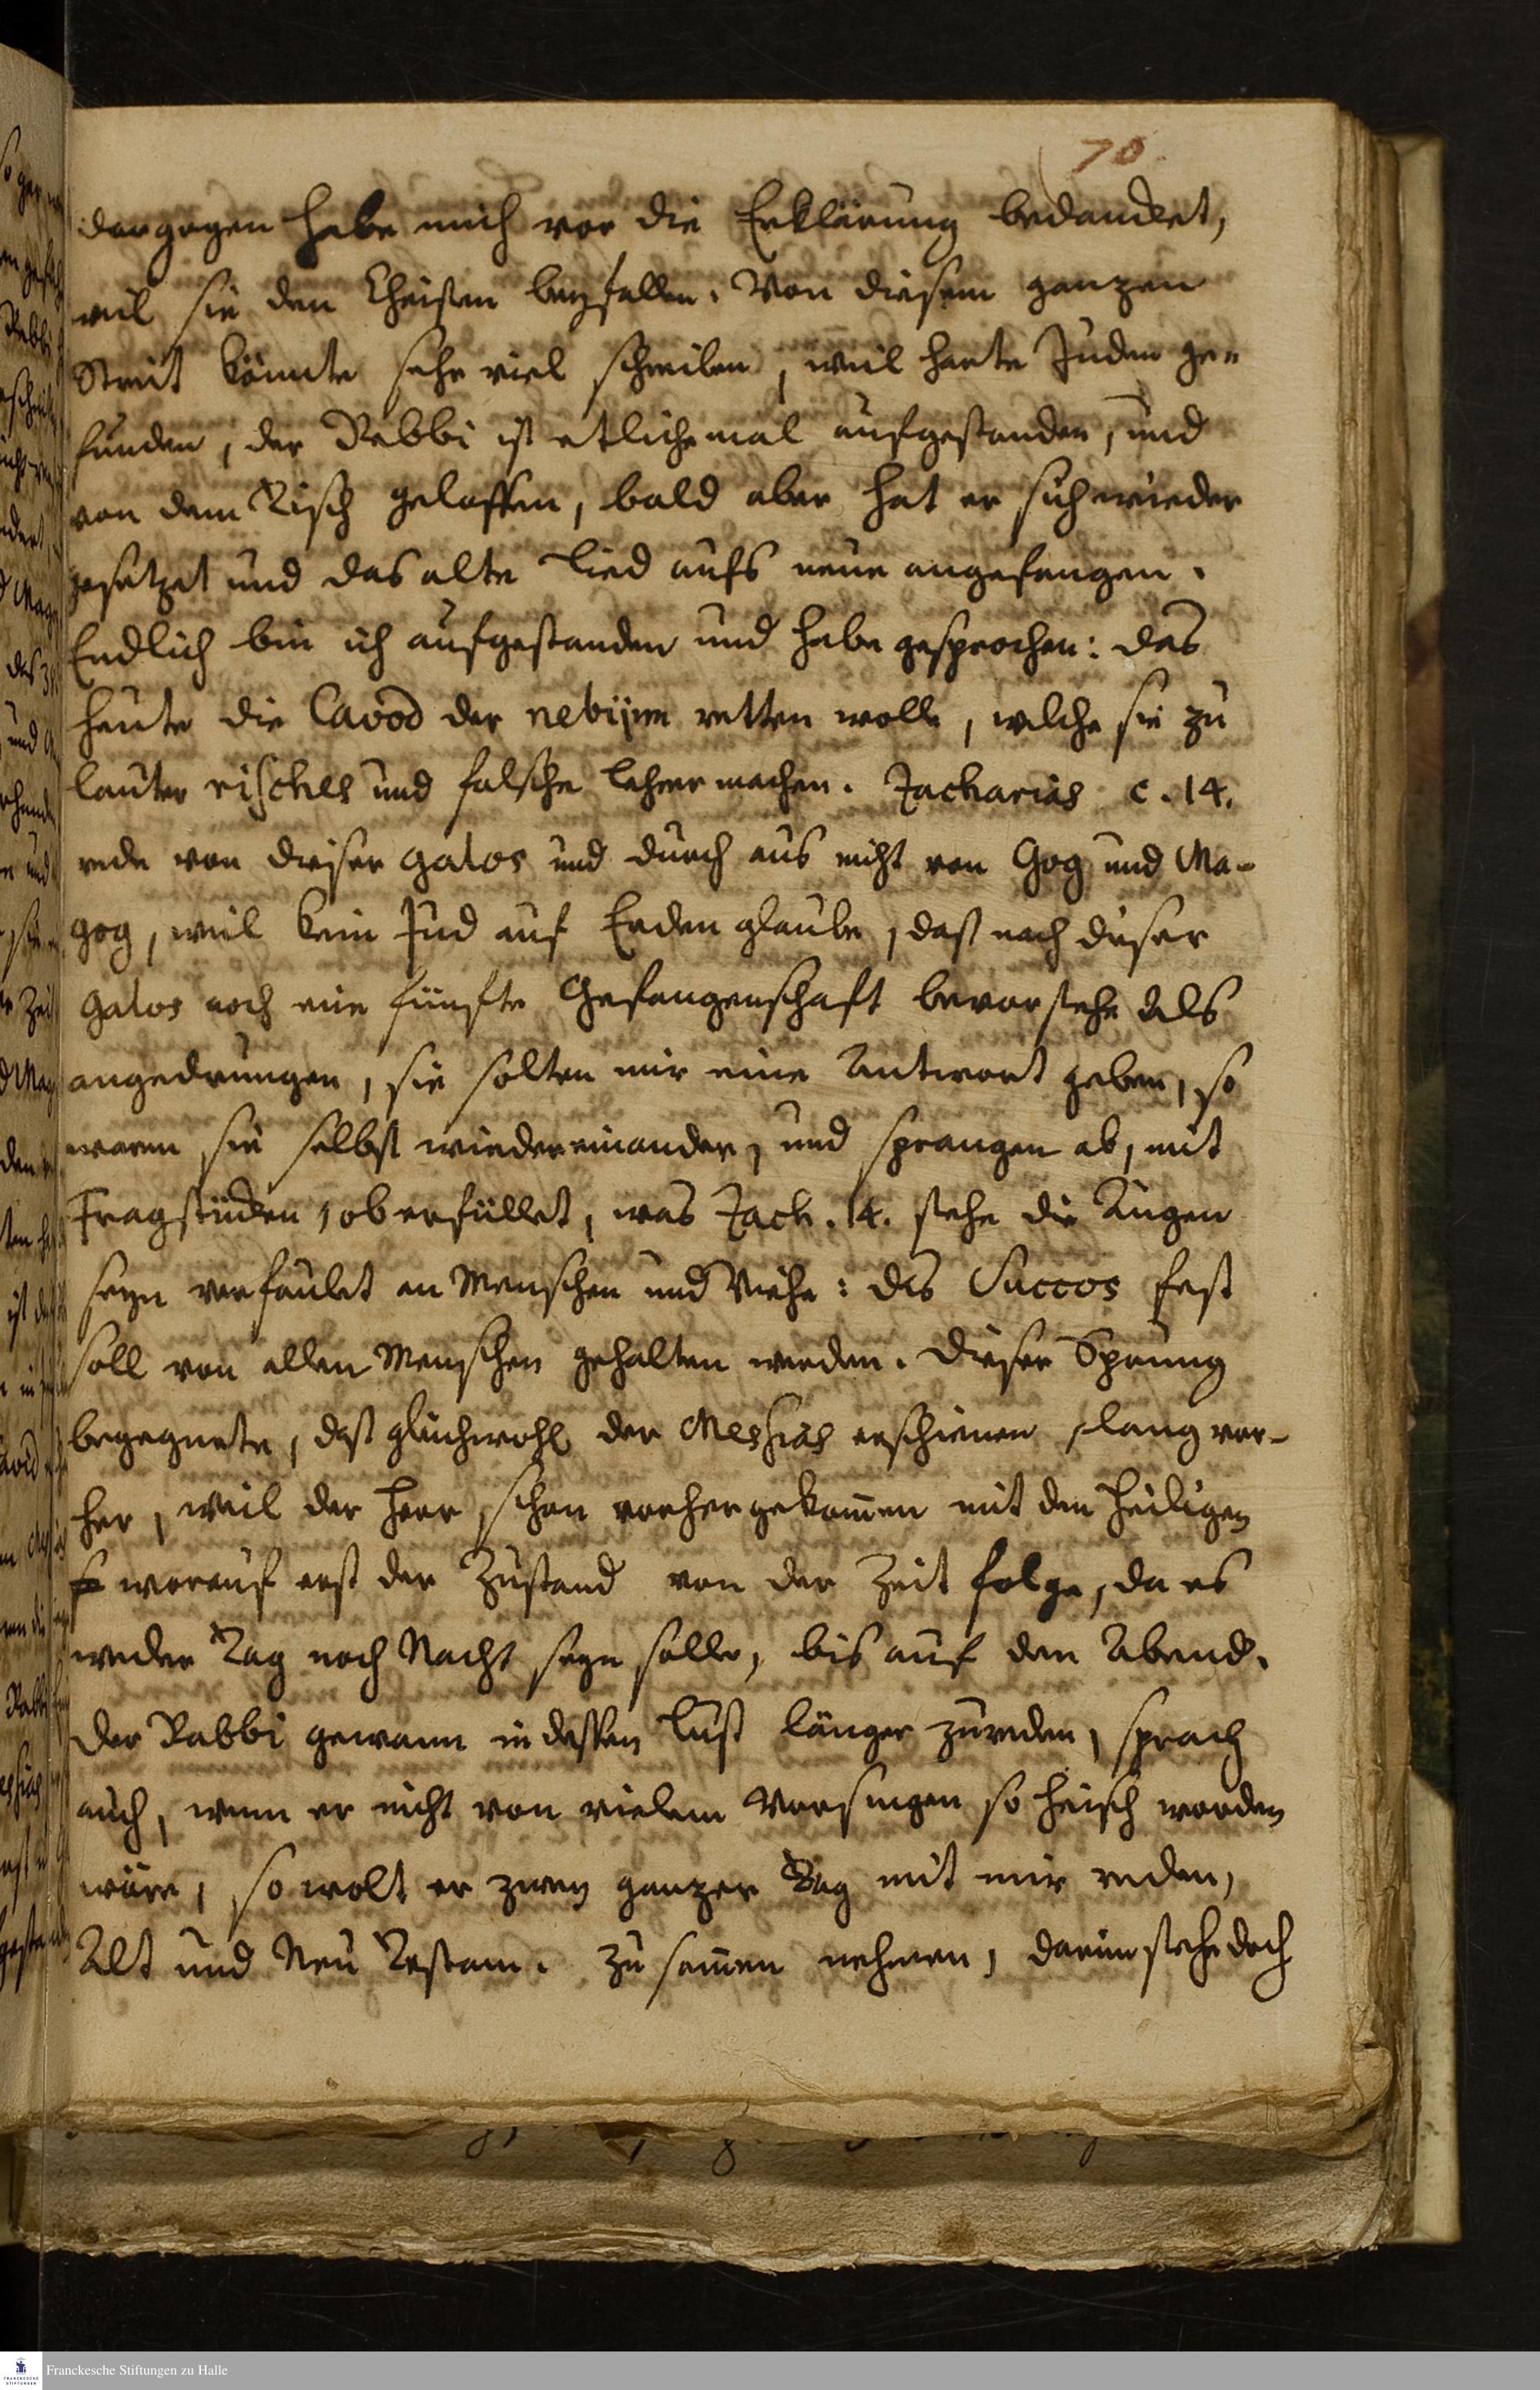 70.
dargegen habe mich vor die Erklärung bedancket,
weil sie den Christen beyfallen. Von diesem ganzen
Streit könnte sehr viel schreiben, weil harte Juden ge-
funden, der Rabbi ist etlichemal aufgestanden, und
von dem Tisch geloffen, bald aber hat er sich wieder
gesetzet und das alte Lied aufs neue angefangen.
Endlich bin ich aufgestanden und habe gesprochen: das
heute die Cavod der nebijim retten wolle, welche sie zu
lauter risches und falsche Lehrer machen. Zacharias c. 14.
rede von dieser galos und durch aus nicht von Gog und Ma-
gog, weil kein Jud auf Erden glaube, daß nach dieser
galos noch eine fünfte Gefangenschaft bevorstehe als
angedrungen, sie solten mir eine Antwort geben, so
waren sie selbst wiedereinander, und sprangen ab, mit
Fragstücken, ob erfüllet, was Zach. 14. stehe die Augen
seyn verfault an Menschen und Viehe: das Succos fest
soll von allen Menschen gehalten werden. Dieser Sprung
begegnete, daß gleichwohl der Messias erschienen, lang vor-
her, weil der Herr schon vorher gekommen mit den Heiligen
worauf erst der Zustand von der Zeit folge, da es
weder Tag noch Nacht seyn solle, bis auf den Abend.
Der Rabbi gewann indessen Lust länger zureden, sprach
auch, wenn er nicht von vielem Vorsingen so heisch worden
wäre, so wolt er zwey ganzer Tag mit mir reden,
Alt und Neu Testam. zusammen nehmen, darinn stehe doch
Franckesche Stiftungen zu Halle